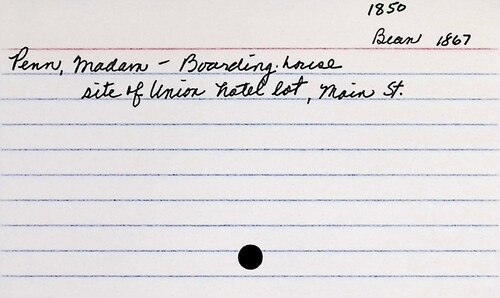 1850
Bean 1867
Penn, Madam - Boarding-house
site of Union hotel lot, Main St.